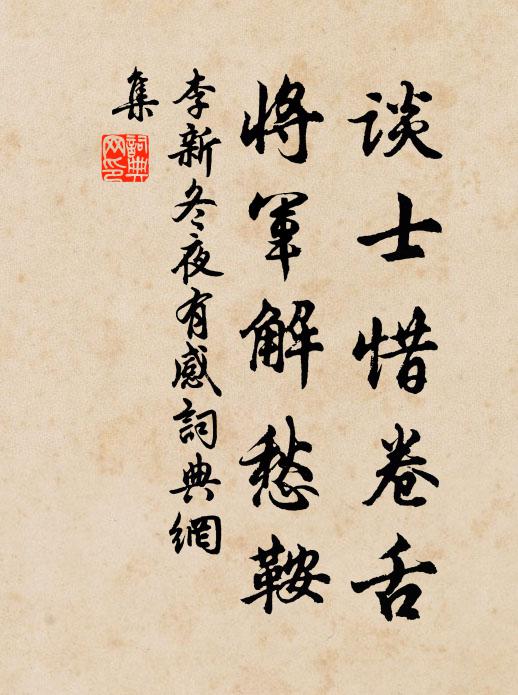 谈士惜卷舌
将军解愁鞍
李新冬夜有感詞典網
集
詞典网印